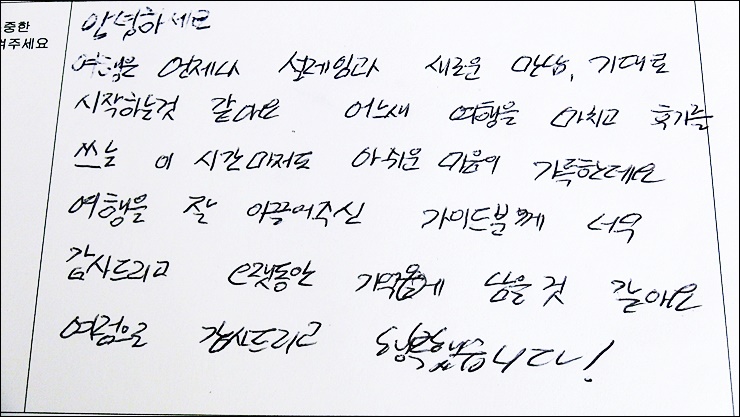 중한
겨주세요
안녕하세요
여행은 언제나 설레임과 새로운 만남, 기대로
시작하는것 같아요 어느새 여행을 마치고 후기를
쓰는 이 시간마저도 아쉬운 마음이 가득한데요
여행을 잘 이끌어주신 가이드분께 너무
감사드리고 오랫동안 기억에 남을것 같아요
감사드리고 행복했습니다!